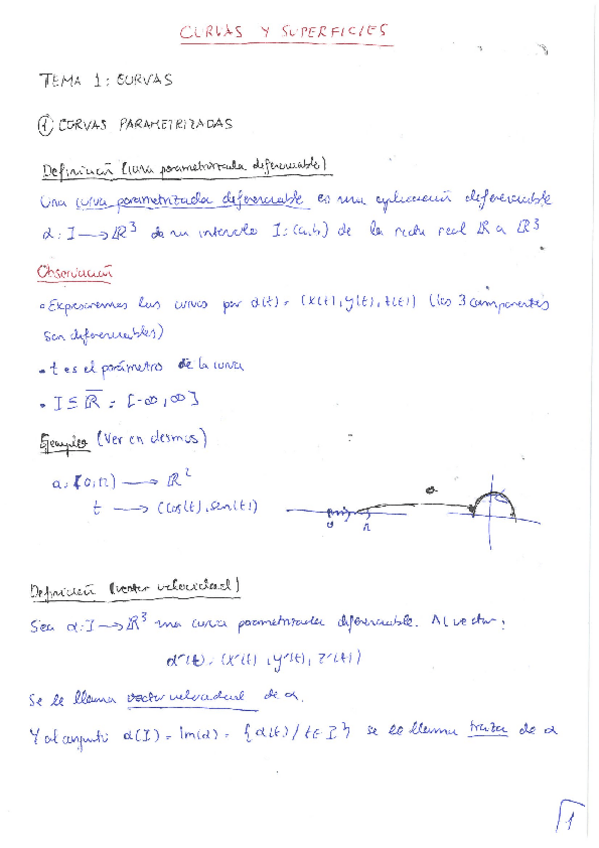 CURVAS Y SUPERFICIES
TEMA 1: CURVAS
① CURVAS PARAMETRIZADAS
Definición (curva parametrizada diferenciable)
Una curva parametrizada diferenciable es una aplicación diferenciable
α: I ⟶ ℝ³ de un intervalo I: (a,b) de la recta real ℝ a ℝ³
Observación
• Expresaremos las curvas por α(t) = (x(t), y(t), z(t)) (las 3 componentes
son diferenciables)
• t es el parámetro de la curva
• I ⊆ ℝ̅ = [-∞, ∞]
Ejemplo (Ver en desmos)
α: (0,π) ⟶ ℝ²
t ⟶ (cos(t), sen(t))
α
0 π
Definición (vector velocidad)
Sea α: I ⟶ ℝ³ una curva parametrizada diferenciable. Al vector:
α'(t) = (x'(t), y'(t), z'(t))
se le llama vector velocidad de α.
Y al conjunto α(I) = Im(α) = {α(t) / t ∈ I} se le llama traza de α
1